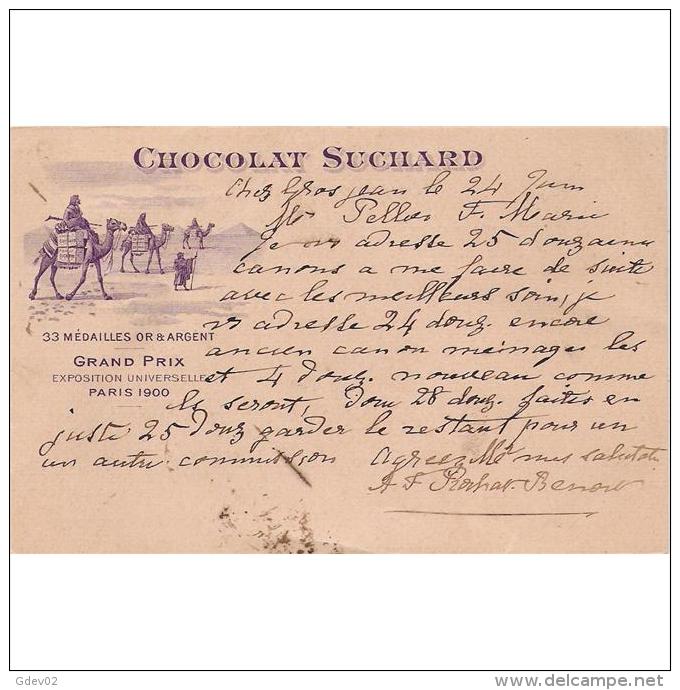 CHOCOLAT SUCHARD
Chez Grosjean le 24 Juin
Mr Pellou F. Marin
Je vs adresse 25 douzaine
canons a me faire de suite
avec les meilleurs soin, je
vs adresse 24 douz. encore
ancien canon ménages les
et 4 douz. nouveau comme
ils seront, dom 28 douz. faites en
juste 25 douz garder le restant pour un
un autre commission agreez Mr mes salutat.
A F Rochat-Benoit
33 MÉDAILLES OR & ARGENT
GRAND PRIX
EXPOSITION UNIVERSELLE
PARIS 1900
Gdev02
delcampe.net